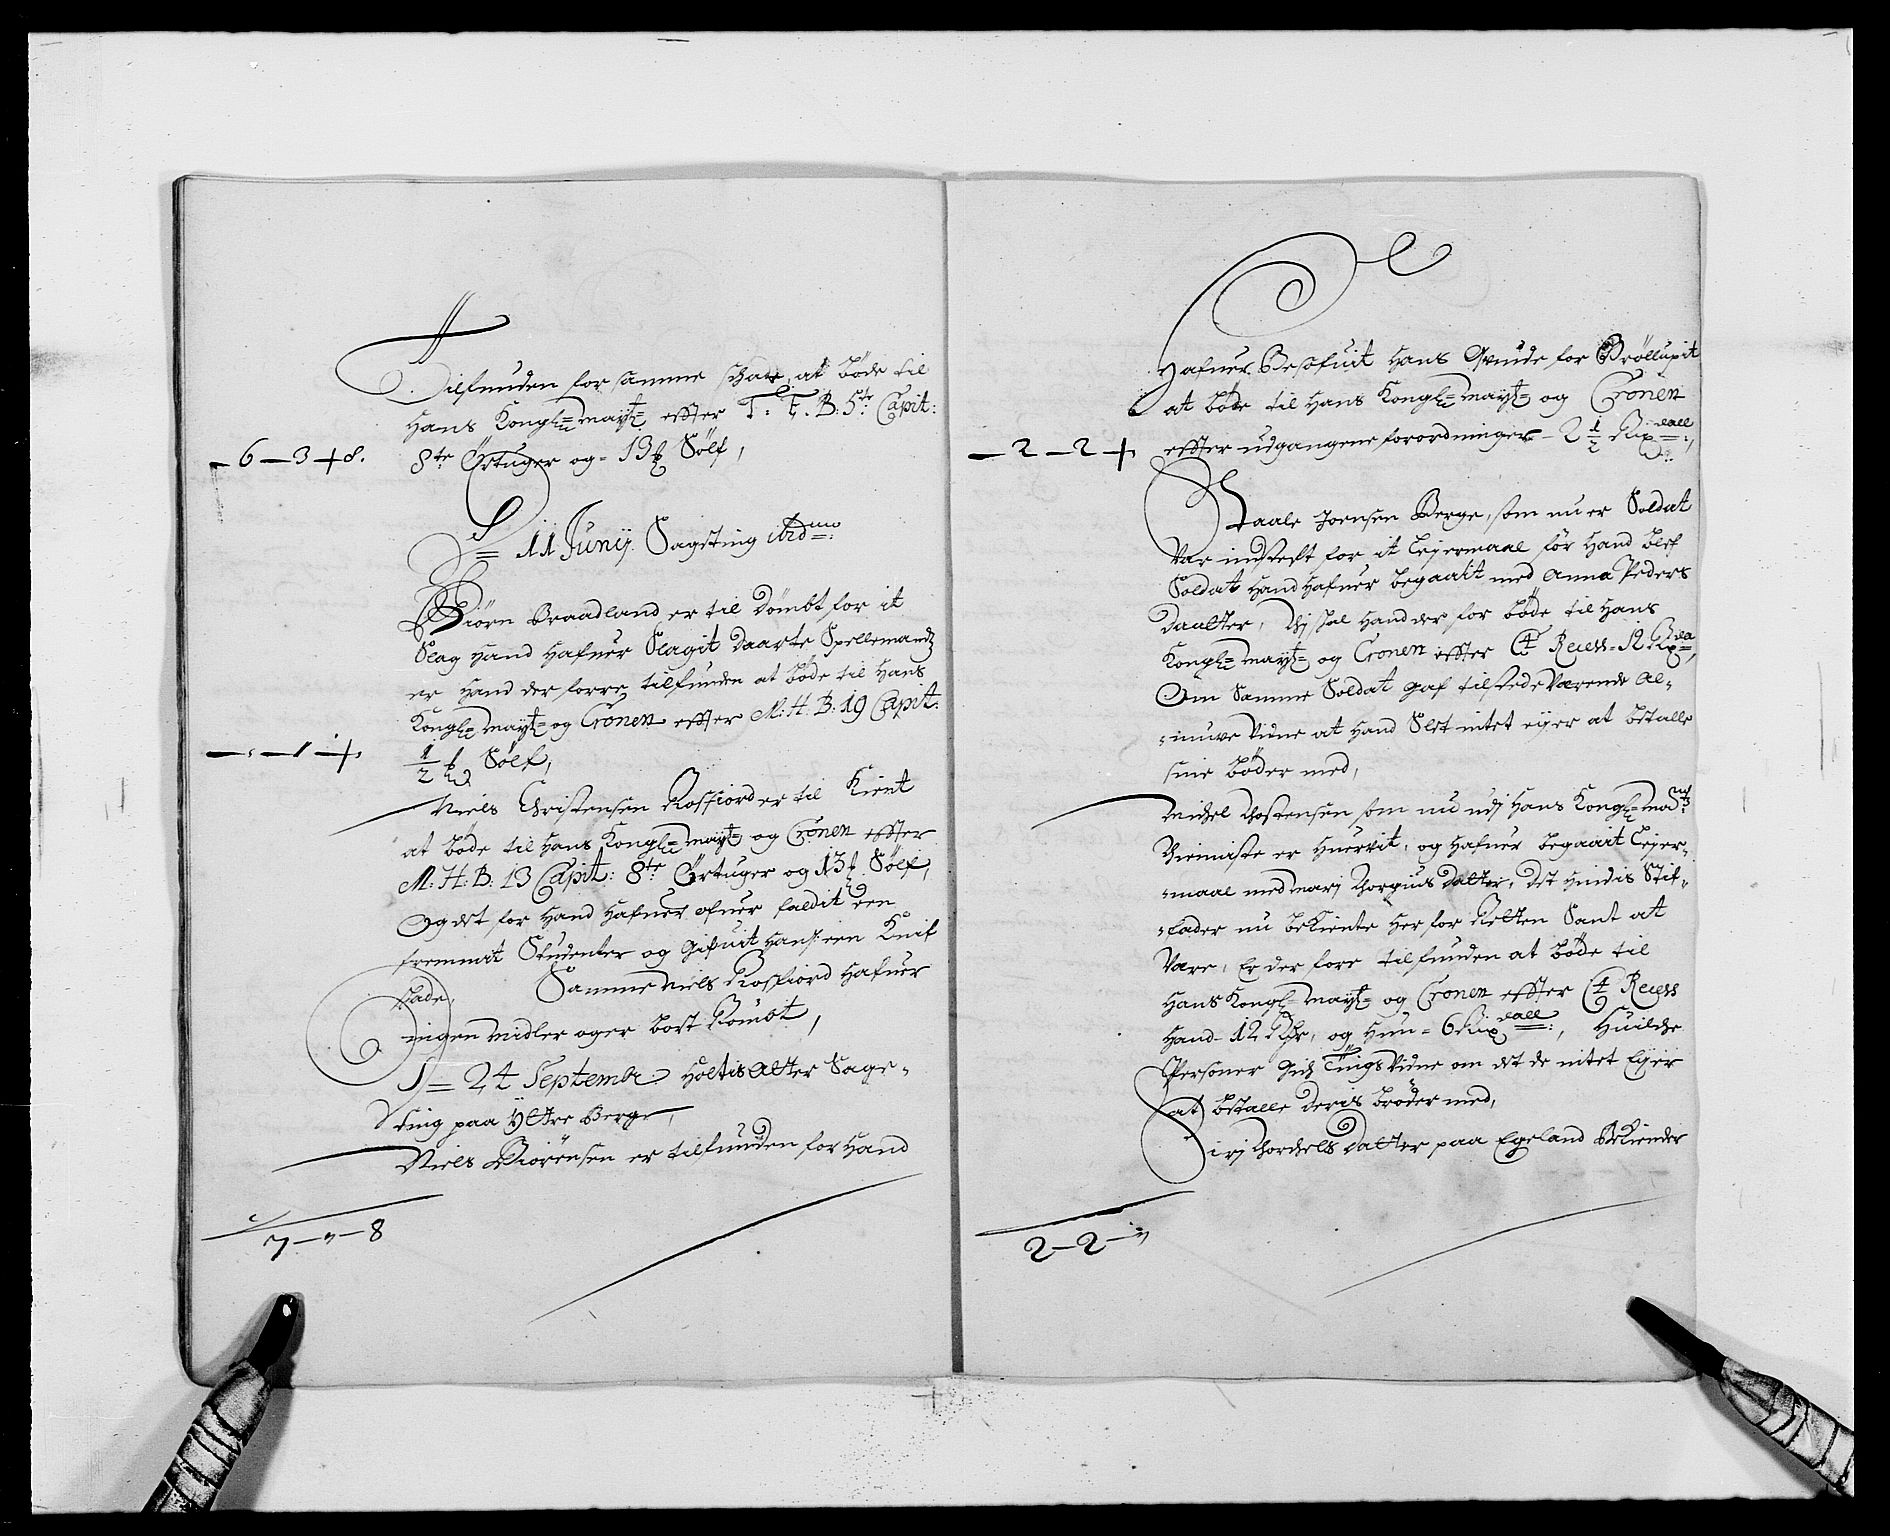 Tilfunden for samme schade, at bøde til
Hans Kongl: mayt: effter T: T. B: 5te Capit:
6 - 3 + 8. 8te Ørtuger og 13 Sølf,
11 Junij. Sagting ibidmo:
Biørn Braadland er til dømbt for it
Slag Hand Hafuer Slagit Daarte Spellemand
er Hand der forre tilfunden at bøde til Hans
Kongl: mayt: og Cronen effter M: H: B: 19 Capit:
- 1 - 1/2 Sølf,
Niels Christensen Rossfiord er til Kient
at bøde til Hans Kongl: mayt: og Cronen effter
M: H: B: 13 Capit: 8te Ørtuger og 13 Sølf,
Og det for Hand Hafuer ofuer faldit een
fremmit Studenter og gifuit Hans een Knif
skade. Samme Niels Rossfiord Hafuer
ingen midler og er bort Rømbt,
24 Septembr. Holtis atter Sage-
ting paa Yttre Berge,
Niels Biørensen er tilfunden for Hand
7 - " - 8
Hafuer Besofuit Hans Quinde for Brøllupit
at bøde til Hans Kongl: mayt: og Cronen
2 - 2 + effter udgangene forordninger - 2 1/2 Rixdall:,
Staale Joensen Berge, som nu er Soldat
Var indsteft for it Lejermaal før Hand blef
Soldat Hand Hafuer begaait med Anna Peders
Daatter, Hand der for bøde til Hans
Kongl: mayt: og Cronen effter Recess - 12 Rixda:,
Om Samme Soldat gaf tilstede Værende Al-
-muve Vidne at Hand Slet intet eijer at betalle
sine bøder med,
Michel Thostensen som nu udj Hans Kongl: maijts:
Thienniste er Huervit, og Hafuer begaait Lejer-
-maal med Marj Thorgiusdatter, det Hindis Stif-
-fader nu bekiente Her for Retten Sant at
Være, Er der fore tilfunden at bøde til
Hans Kongl: mayt: og Cronen effter Recess
Hand 12 Rdr, og Hun - 6 Rixdall:, Huilche
Personer Tings Vidne om det de intet Eijer
at betalle deris brøder med,
Sirj Thorchelsdatter paa Egeland Bekiender
2 - 2 - "